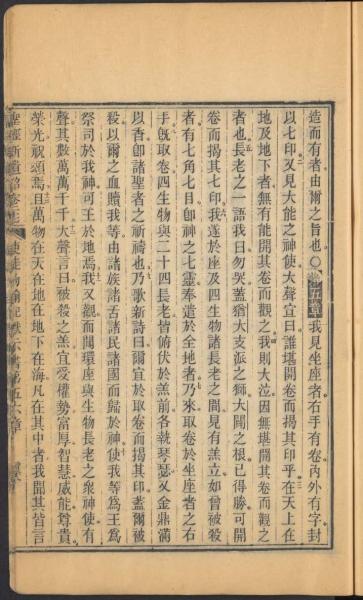 造而有者由爾之旨也〇第五章我見坐座者右手有卷內外有字封
以七印又見大能之神使大聲宣曰誰堪開卷而揭其印乎在天上在
地及地下者無有能開其卷而觀之我則大泣因無堪開其卷而觀之
者也長老之一語我曰勿哭蓋猶大支派之獅大闢之根已得勝可開
卷而揭其七印我遂於座及四生物諸長老之間見有羔立如曾被殺
者有七角七目卽神之七靈奉遣於全地者乃來取卷於坐座者之右
手旣取卷四生物與二十四長老皆俯伏於羔前各執琴瑟又金鼎滿
以香卽諸聖者之祈禱也乃歌新詩曰爾宜於取卷而揭其印蓋爾被
殺以爾之血贖我等由諸族諸舌諸民諸國而歸於神使我等爲王爲
祭司於我神可王於地焉我又觀而聞環座與生物長老之衆神使有
聲其數萬萬千千大聲言曰被殺之羔宜受權勢富厚智慧威能尊貴
榮光祝頌焉且萬物在天在地在地下在海凡在其中者我聞其皆言
示書第五六章